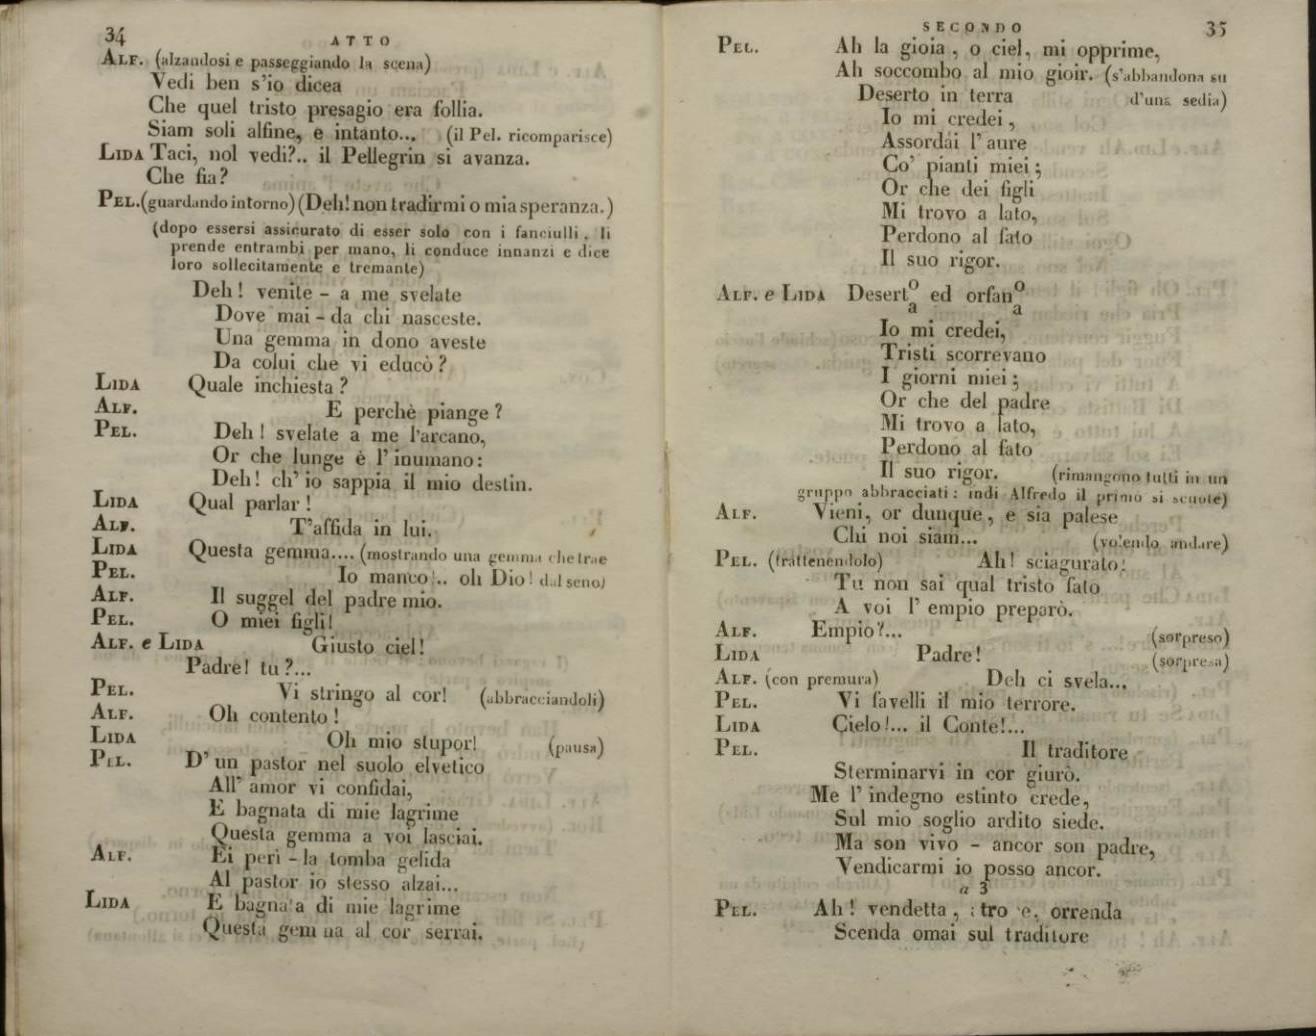 34
ATTO
ALF. (alzandosi e passeggiando la scena)
Vedi ben s'io dicea
Che quel tristo presagio era follia.
Siam soli alfine, e intanto... (il Pel. ricomparisce)
LIDA Taci, nol vedi?.. il Pellegrin si avanza.
Che fia?
PEL. (guardando intorno) (Deh! non tradirmi o mia speranza.)
(dopo essersi assicurato di esser solo con i fanciulli, li
prende entrambi per mano, li conduce innanzi e dice
loro sollecitamente e tremante)
Deh! venite - a me svelate
Dove mai - da chi nasceste.
Una gemma in dono aveste
Da colui che vi educò?
LIDA Quale inchiesta?
ALF. E perchè piange?
PEL. Deh! svelate a me l'arcano,
Or che lunge è l'inumano:
Deh! ch'io sappia il mio destin.
LIDA Qual parlar!
ALF. T'affida in lui.
LIDA Questa gemma.... (mostrando una gemma che trae
PEL. Io manco!.. oh Dio! dal seno)
ALF. Il suggel del padre mio.
PEL. O miei figli!
ALF. e LIDA Giusto ciel!
Padre! tu?...
PEL. Vi stringo al cor! (abbracciandoli)
ALF. Oh contento!
LIDA Oh mio stupor! (pausa)
PEL. D'un pastor nel suolo elvetico
All' amor vi confidai,
E bagnata di mie lagrime
Questa gemma a voi lasciai.
ALF. Ei perì - la tomba gelida
Al pastor io stesso alzai...
LIDA E bagnata di mie lagrime
Questa gemma al cor serrai.
SECONDO
35
PEL. Ah la gioia, o ciel, mi opprime,
Ah soccombo al mio gioir. (s'abbandona su
Deserto in terra d'una sedia)
Io mi credei,
Assordai l'aure
Co' pianti miei;
Or che dei figli
Mi trovo a lato,
Perdono al fato
Il suo rigor.
ALF. e LIDA Desert o/a ed orfan o/a
Io mi credei,
Tristi scorrevano
I giorni miei;
Or che del padre
Mi trovo a lato,
Perdono al fato
Il suo rigor. (rimangono tutti in un
gruppo abbracciati: indi Alfredo il primo si scuote)
ALF. Vieni, or dunque, e sia palese
Chi noi siam... (volendo andare)
PEL. (trattenendolo) Ah! sciagurato!
Tu non sai qual tristo fato
A voi l'empio preparò.
ALF. Empio?... (sorpreso)
LIDA Padre! (sorpresa)
ALF. (con premura) Deh ci svela...
PEL. Vi favelli il mio terrore.
LIDA Cielo!... il Conte!...
PEL. Il traditore
Sterminarvi in cor giurò.
Me l'indegno estinto crede,
Sul mio soglio ardito siede.
Ma son vivo - ancor son padre,
Vendicarmi io posso ancor.
a 3
PEL. Ah! vendetta, atroce, orrenda
Scenda omai sul traditore